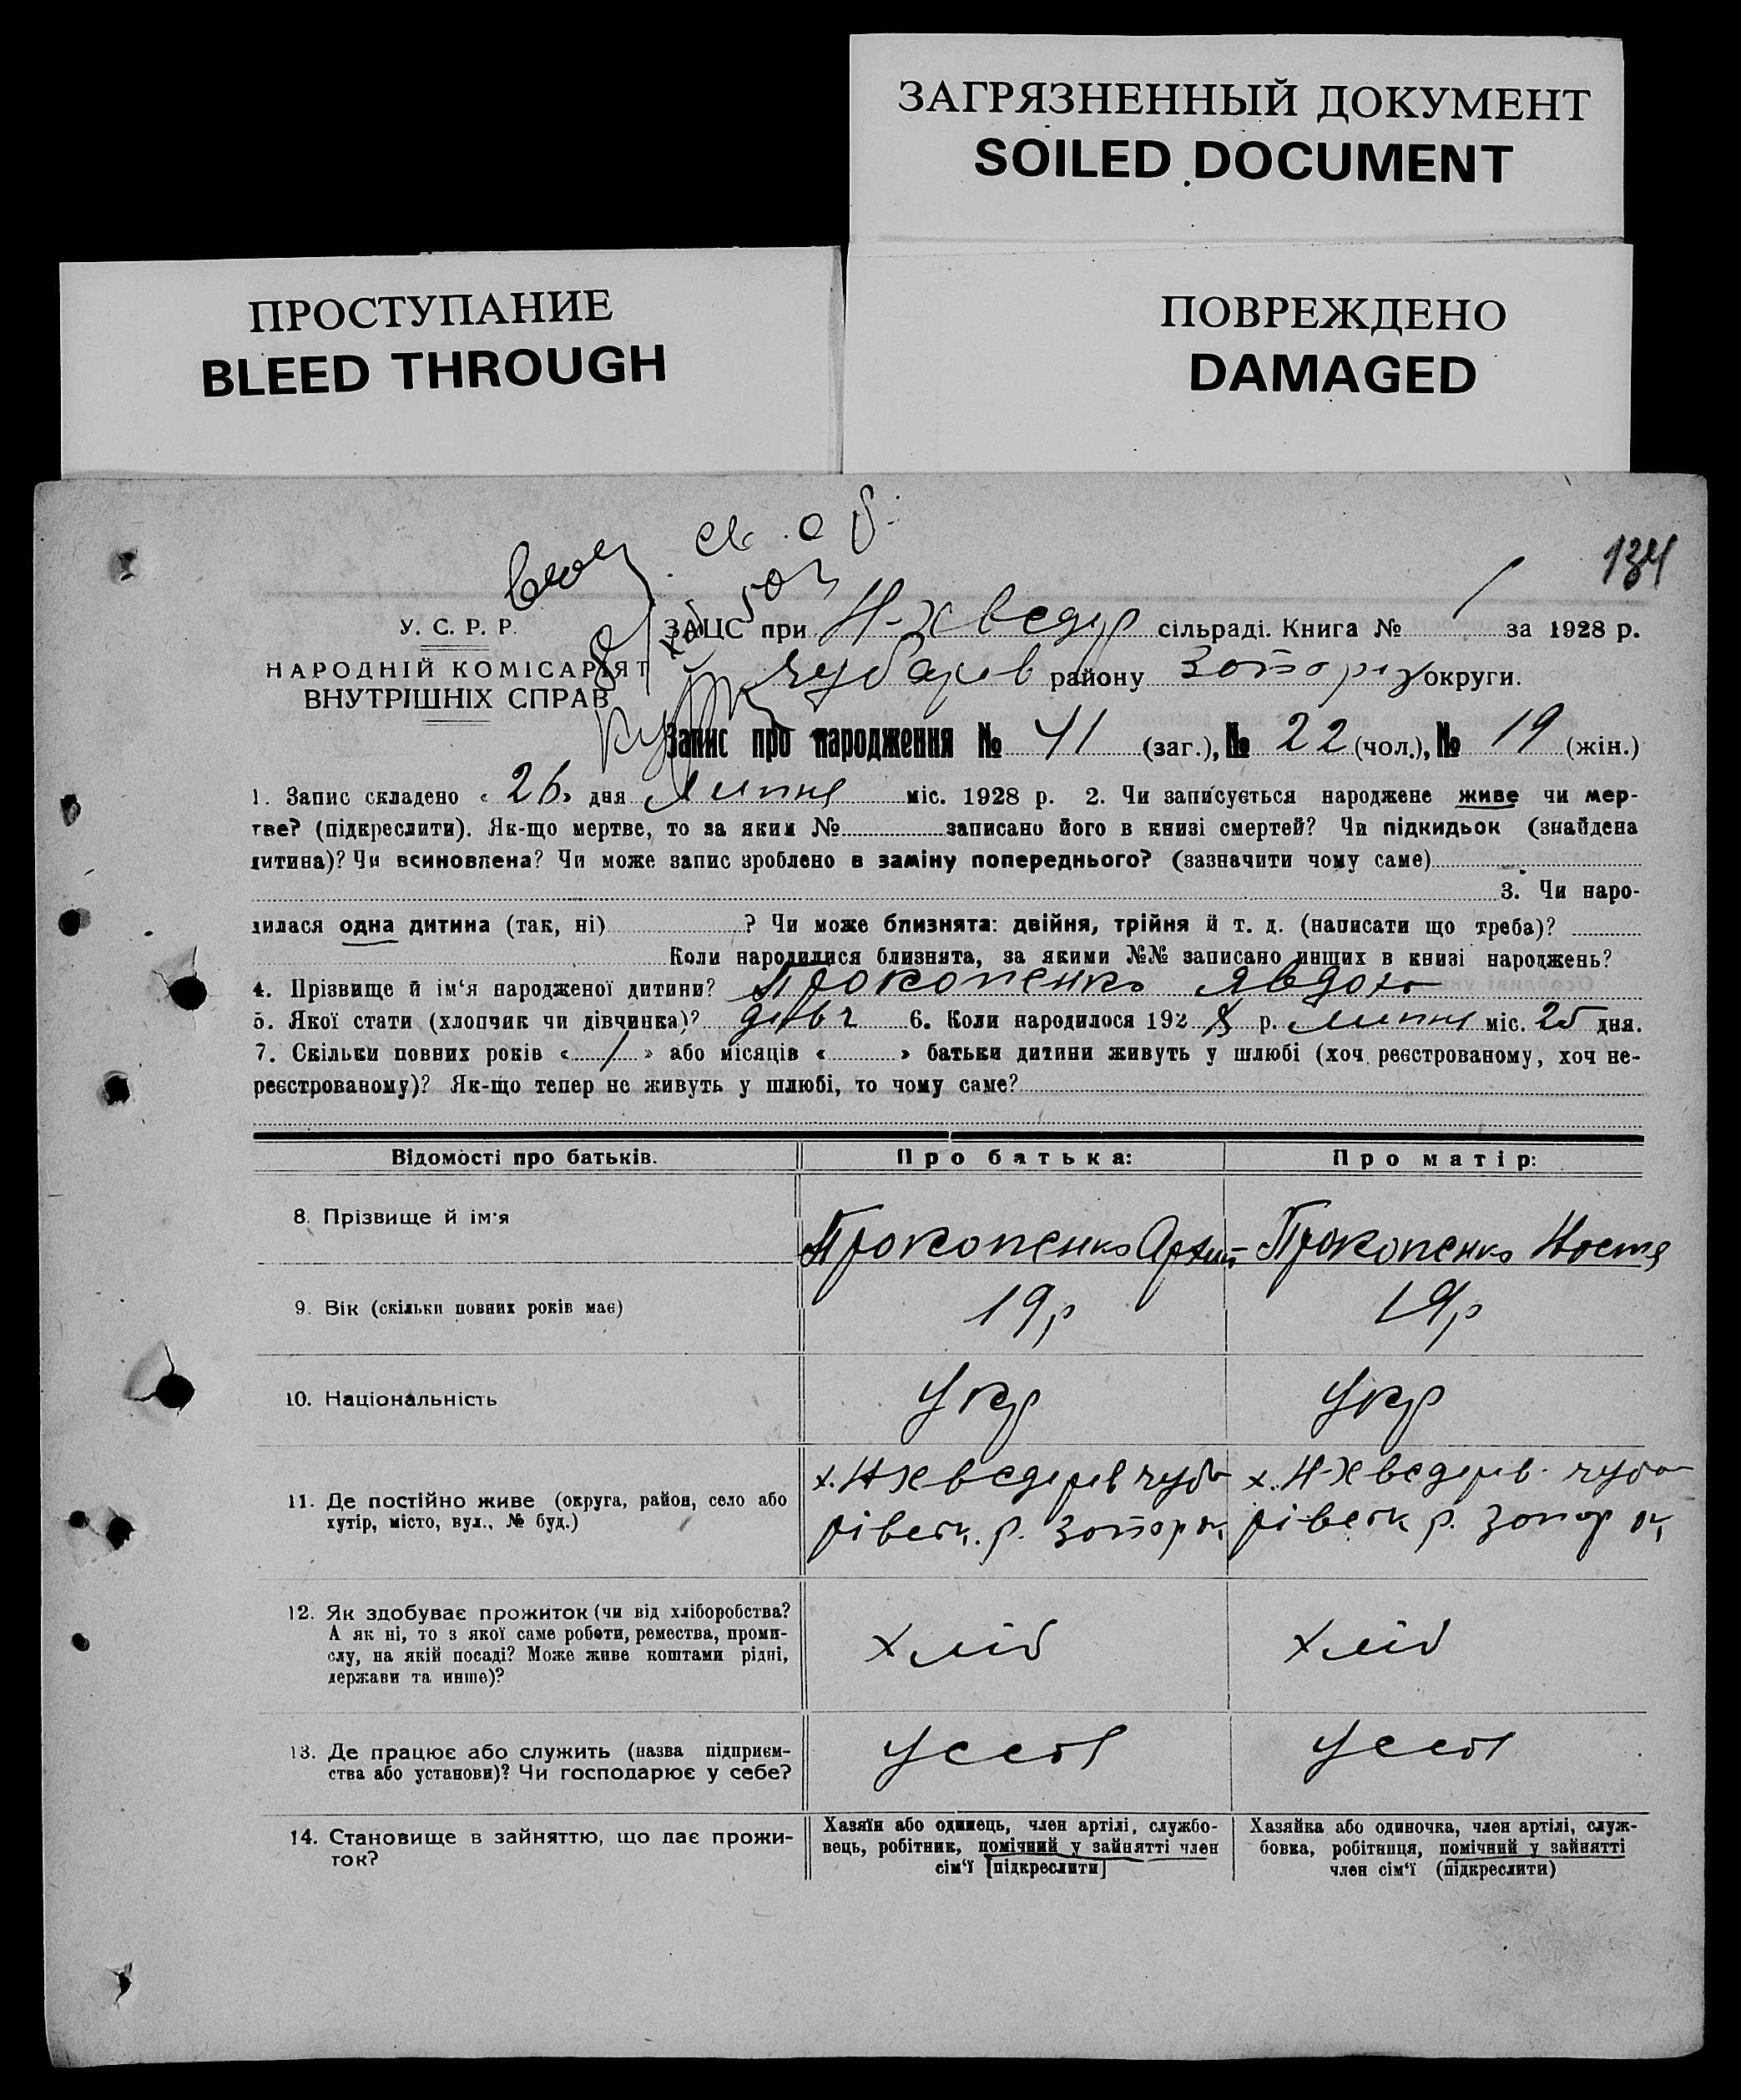 ЗАГРЯЗНЕННЫЙ ДОКУМЕНТ
SOILED DOCUMENT
ПРОСТУПАНИЕ
BLEED THROUGH
ПОВРЕЖДЕНО
DAMAGED
134
У. С. Р. Р.
НАРОДНІЙ КОМІСАРІЯТ
ВНУТРІШНІХ СПРАВ
ЗАЦС при Н-Хведур сільраді. Книга № 1 за 1928 р.
Чубарев району Запоріз округи.
Запис про народження № 41 (заг.), № 22 (чол.), № 19 (жін.)
1. Запис складено « 26 » дня Липня міс. 1928 р. 2. Чи записується народжене живе чи мер-
тве? (підкреслити). Як-що мертве, то за яким № записано його в книзі смертей? Чи підкидьок (знайдена
дитина)? Чи всиновлена? Чи може запис зроблено в заміну попереднього? (зазначити чому саме)
3. Чи наро-
дилася одна дитина (так, ні) ? Чи може близнята: двійня, трійня й т. д. (написати що треба)?
Коли народилися близнята, за якими №№ записано инших в книзі народжень?
4. Прізвище й ім‘я народженої дитини? Прокопенко Явдоха
5. Якої стати (хлопчик чи дівчинка)? дівч 6. Коли народилося 1928 р. Липня міс. 25 дня.
7. Скільки повних років « 1 » або місяців « » батьки дитини живуть у шлюбі (хоч реєстрованому, хоч не-
реєстрованому)? Як-що тепер не живуть у шлюбі, то чому саме?
Відомості про батьків.
Про батька:
Про матір:
8. Прізвище й ім‘я
Прокопенко Архип
Прокопенко Настя
9. Вік (скільки повних років має)
19 р
19 р
10. Національність
Укр
Укр
11. Де постійно живе (округа, район, село або
хутір, місто, вул., № буд.)
х. Н Хведерів Чуба
рівськ. р. Запор ок
х. Н-Хведерів Чуба
рівськ р. Запор ок
12. Як здобуває прожиток (чи від хліборобства?
А як ні, то з якої саме роботи, ремества, проми-
слу, на якій посаді? Може живе коштами рідні,
держави та инше)?
хліб
хліб
13. Де працює або служить (назва підприєм-
ства або установи)? Чи господарює у себе?
У себя
У себя
14. Становище в зайняттю, що дає прожи-
ток?
Хазяїн або одинець, член артілі, службо-
вець, робітник, помічний у зайнятті член
сім‘ї [підкреслити]
Хазяйка або одиночка, член артілі, служ-
бовка, робітниця, помічний у зайнятті
член сім‘ї (підкреслити)